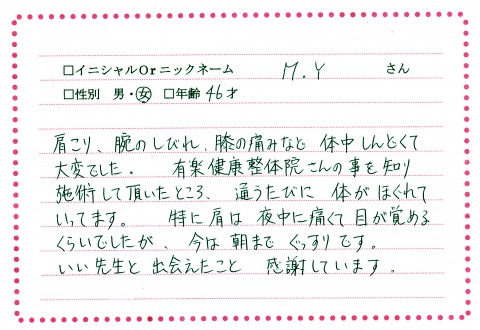 □イニシャルOrニックネーム M.Y さん
□性別 男・女 □年齢 46才
肩こり、腕のしびれ、膝の痛みなど 体中しんどくて
大変でした。 有楽健康整体院さんの事を知り
施術して頂いたところ、通うたびに 体がほぐれて
いってます。 特に肩は 夜中に痛くて目が覚める
くらいでしたが、今は 朝まで ぐっすりです。
いい先生と 出会えたこと 感謝しています。